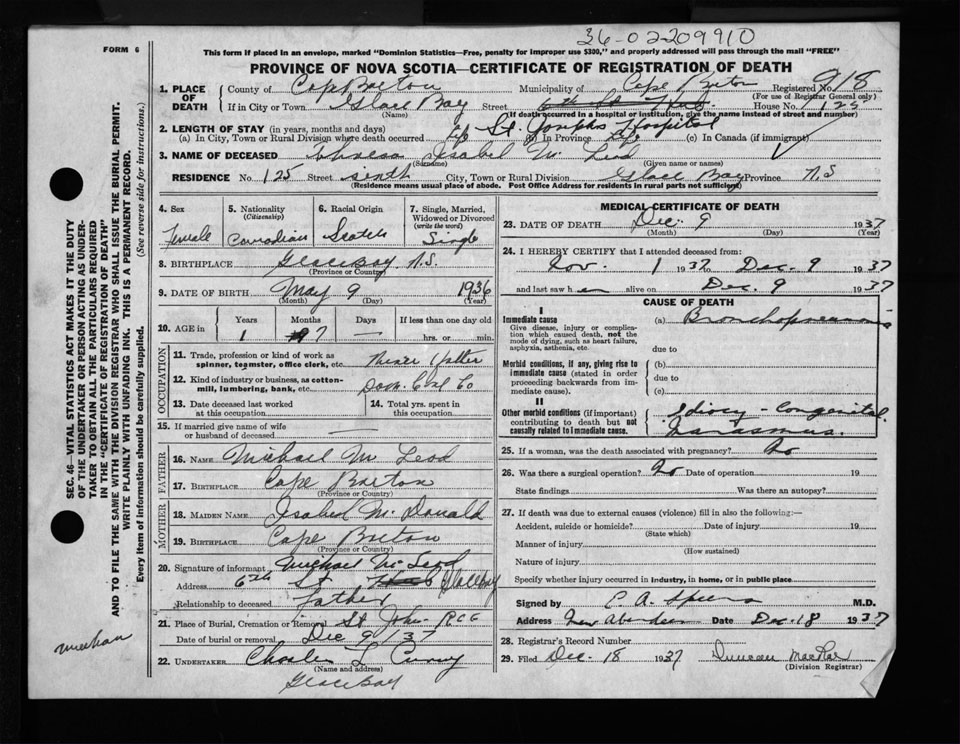 36-02209910
FORM 6
This form if placed in an envelope, marked "Dominion Statistics—Free, penalty for improper use $300," and properly addressed will pass through the mail "FREE"
PROVINCE OF NOVA SCOTIA—CERTIFICATE OF REGISTRATION OF DEATH
1. PLACE OF DEATH
County of Cape Breton Municipality of Cape Breton Registered No. 918
(For use of Registrar General only)
If in City or Town Glace Bay Street 6th St House No. 125
(Name) (If death occurred in a hospital or institution, give the name instead of street and number)
St. Josephs Hospital
2. LENGTH OF STAY (in years, months and days)
(a) In City, Town or Rural Division where death occurred life (b) In Province life (c) In Canada (if immigrant)
3. NAME OF DECEASED Theresa Isabel Mc Leod
(Surname) (Given name or names)
RESIDENCE No. 125 Street sixth City, Town or Rural Division Glace Bay Province N.S
(Residence means usual place of abode. Post Office Address for residents in rural parts not sufficient)
4. Sex Female
5. Nationality (Citizenship) Canadian
6. Racial Origin Scotch
7. Single, Married, Widowed or Divorced (write the word) Single
8. BIRTHPLACE Glacebay N.S.
(Province or Country)
9. DATE OF BIRTH May 9 1936
(Month) (Day) (Year)
10. AGE in Years Months Days If less than one day old
1 7 — hrs. or min.
OCCUPATION
11. Trade, profession or kind of work as spinner, teamster, office clerk, etc.
12. Kind of industry or business, as cotton-mill, lumbering, bank, etc. Dom. Coal Co
13. Date deceased last worked at this occupation
14. Total yrs. spent in this occupation
15. If married give name of wife or husband of deceased —
FATHER
16. NAME Michael Mc Leod
17. BIRTHPLACE Cape Breton
(Province or Country)
MOTHER
18. MAIDEN NAME Isabel Mc Donald
19. BIRTHPLACE Cape Breton
(Province or Country)
20. Signature of informant Michael Mc Leod
Address 6th St Glacebay
Relationship to deceased father
21. Place of Burial, Cremation or Removal St. John
Date of burial or removal Dec 9/37
22. UNDERTAKER Charles L Curry
(Name and address)
Glacebay
MEDICAL CERTIFICATE OF DEATH
23. DATE OF DEATH Dec. 9 1937
(Month) (Day) (Year)
24. I HEREBY CERTIFY that I attended deceased from:
Nov. 1 1937 to Dec. 9 1937
and last saw her alive on Dec. 9 1937
CAUSE OF DEATH
I
Immediate cause (a) Bronchopneumonia
Give disease, injury or complication which caused death, not the mode of dying, such as heart failure, asphyxia, asthenia, etc.
due to
Morbid conditions, if any, giving rise to immediate cause (stated in order proceeding backwards from immediate cause).
(b)
due to
(c)
II
Other morbid conditions (if important) contributing to death but not causally related to immediate cause.
Idiocy - Congenital
Marasmus.
25. If a woman, was the death associated with pregnancy? No
26. Was there a surgical operation? No Date of operation 19
State findings Was there an autopsy?
27. If death was due to external causes (violence) fill in also the following:—
Accident, suicide or homicide? Date of injury 19
(State which)
Manner of injury
(How sustained)
Nature of injury
Specify whether injury occurred in industry, in home, or in public place
Signed by M.D.
Address New Aberdeen Date Dec. 18 1937
28. Registrar's Record Number
29. Filed Dec. 18 1937 Duncan MacRae
(Division Registrar)
SEC. 46—VITAL STATISTICS ACT MAKES IT THE DUTY
OF THE UNDERTAKER OR PERSON ACTING AS UNDERTAKER TO OBTAIN ALL THE PARTICULARS REQUIRED
IN THE "CERTIFICATE OF REGISTRATION OF DEATH"
AND TO FILE THE SAME WITH THE DIVISION REGISTRAR WHO SHALL ISSUE THE BURIAL PERMIT.
WRITE PLAINLY WITH UNFADING INK. THIS IS A PERMANENT RECORD.
Every item of information should be carefully supplied. (See reverse side for instructions.)